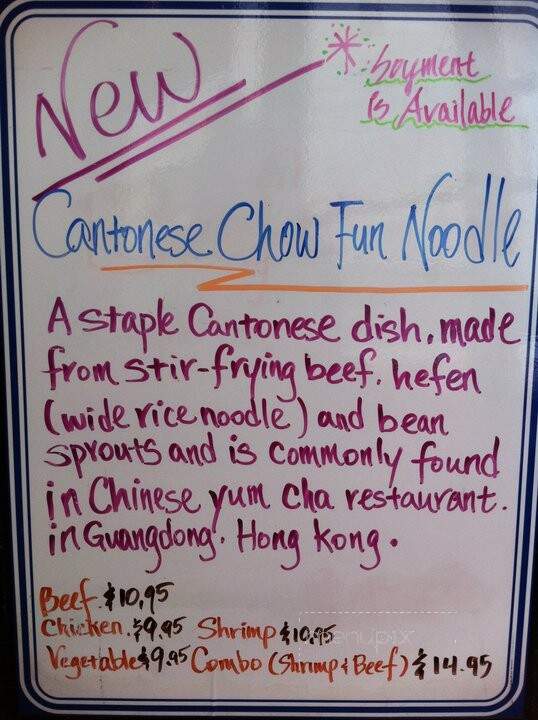 New
* Soyment
is Available
Cantonese Chow Fun Noodle
A staple Cantonese dish, made
from stir-frying beef, hefen
(wide rice noodle) and bean
sprouts and is commonly found
in Chinese yum cha restaurant.
in Guangdong. Hong Kong.
Beef $10.95
Chicken $9.95 Shrimp $10.95
Vegetable $9.95 Combo (Shrimp & Beef) $14.95
menupix